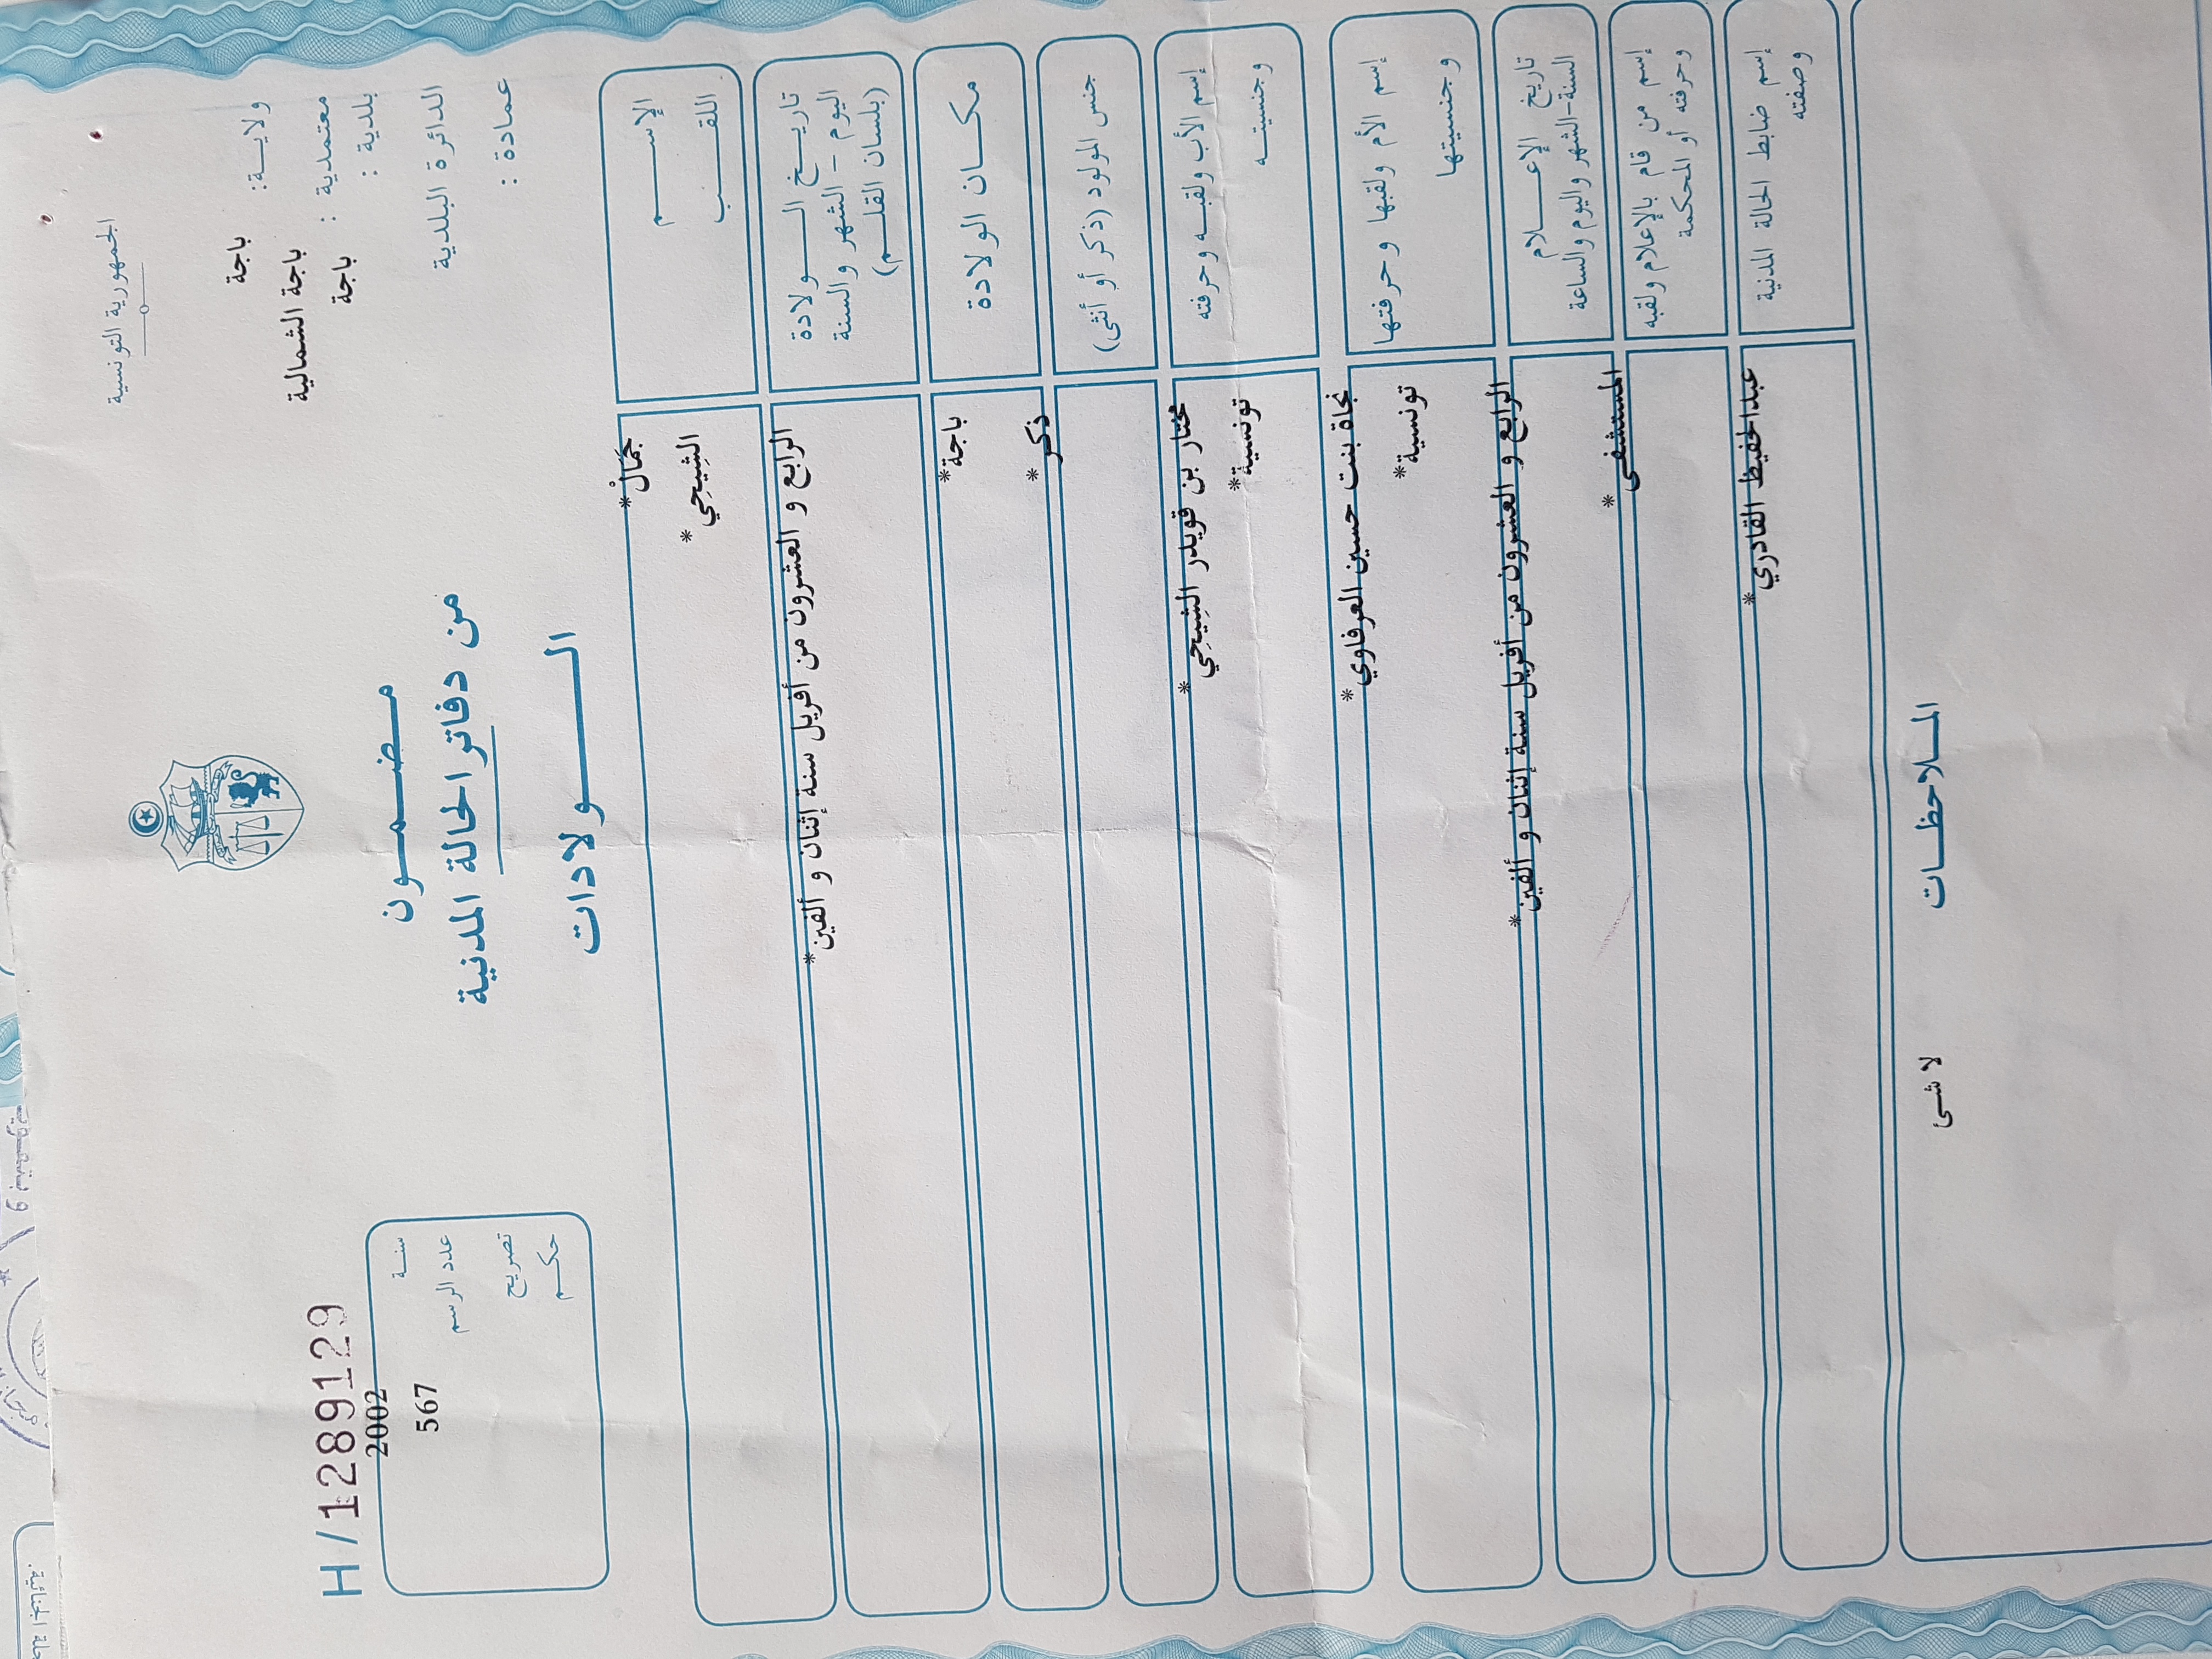 الجمهورية التونسية
ولايـــة: باجة
معتمدية : باجة الشمالية
بلدية : باجة
الدائرة البلدية
عمادة :
مـضـمـــون
من دفاتر الحالة المدنية
الـــــولادات
H/1289129
سنـة 2002
عدد الرسم 567
تصريح
حكـم
الإســـم *جمَالْ
اللقـــب *الشِيحِي
تاريـــخ الــــولادة
اليوم - الشهر والسنة
(بلسان القلـم)
*الرابع و العشرون من أفريل سنة إثنان و ألفين
مكـــان الولادة *باجة
جنس المولود (ذكر أو أنثى) *ذكر
إسم الأب ولقبـه وحرفته *مختار بن قويدر الشِيحِي
وجنسيتـه *تونسية
إسم الأم ولقبها وحرفتها *نجاة بنت حسين العرفاوي
وجنسيتها *تونسية
تاريخ الإعـــلام
السنة-الشهر واليوم والساعة
*الرابع و العشرون من أفريل سنة إثنان و ألفين
إسم من قام بالإعلام ولقبه
وحرفته أو المحكمة
*المستشفى
إسم ضابط الحالة المدنية
وصفته
*عبدالحفيظ القادري
المـلاحظـات
لا شئ